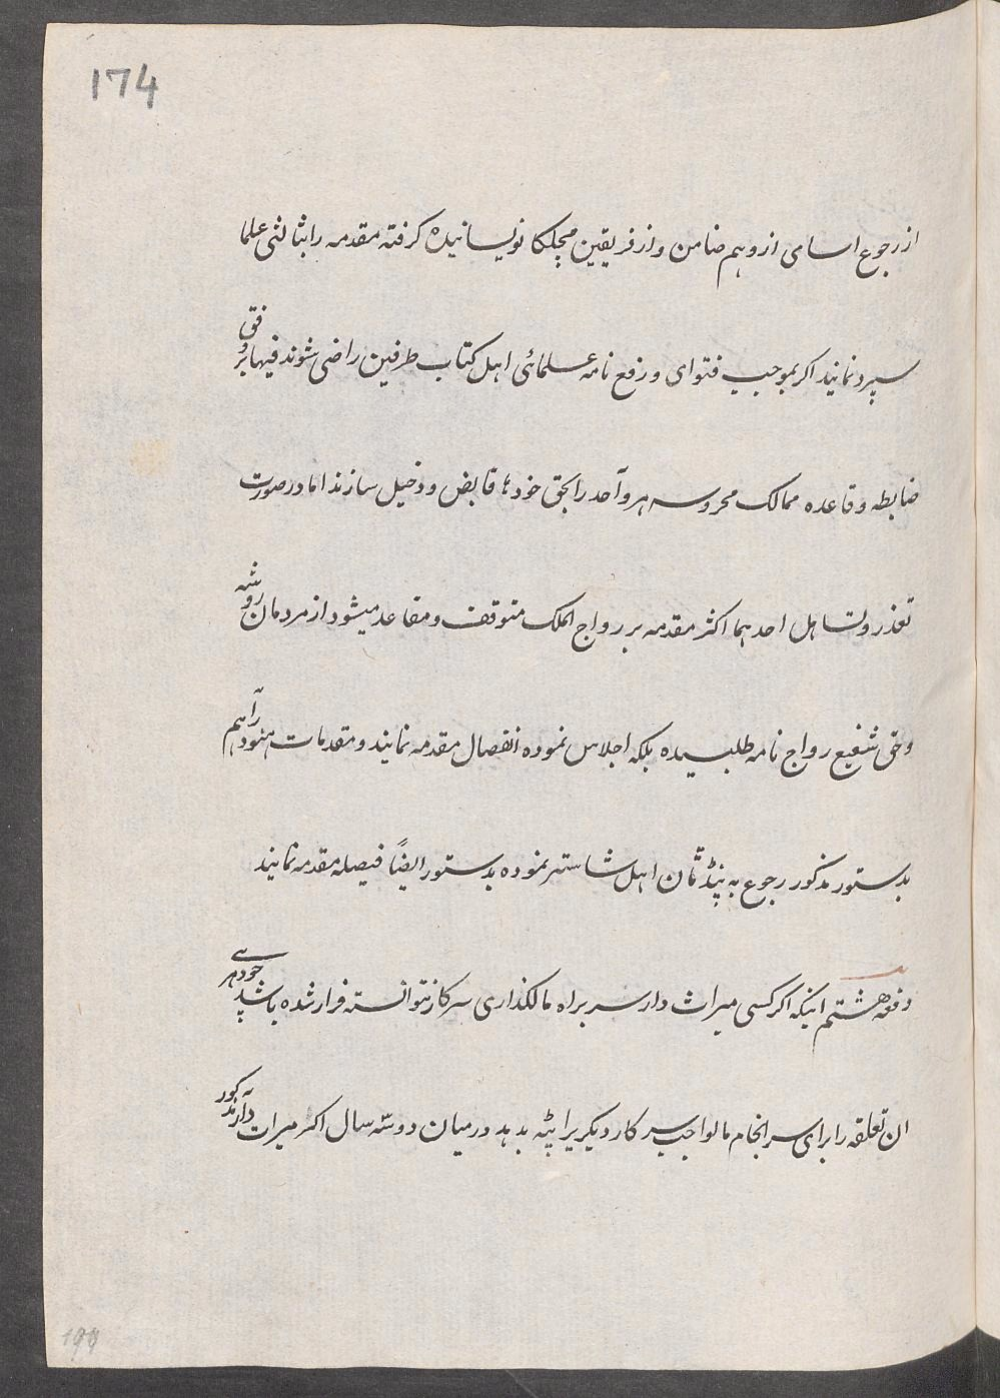 174
از رجوع اسامی ازو هم ضامن و از فریقین مچلکا نویسانیده کرفته مقدمه را بثالثی علما
سپرد نمایند اکر بموجب فتوای و رفع نامه علمائی اهل کتاب طرفین راضی شوند فیها بر وفق
ضابطه و قاعده ممالک محروسه هر واحد را بحق خودها قابض و دخیل سازند اما در صورت
تعذر و تساهل احدهما اکثر مقدمه بر رواج الملک متوقف و مقاعد میشود از مردمان روشه
و حق شفیع رواج نامه طلبیده بلکه اجلاس نموده انفصال مقدمه نمایند و مقدمات هنود را هم
بدستور مذکور رجوع به پنڈتان اهل شاستر نموده بدستور ایضًا فیصله مقدمه نمایند
دفعه هشتم اینکه اکر کسی میراث دار سربراه مالکذاری سرکار نتوانسته فرار شده باشد
ان تعلقه را برای سرانجام مالواجب سرکار دیکریرا پٹه بدهد درمیان دو سه سال اکر میراث دار مذکور
199